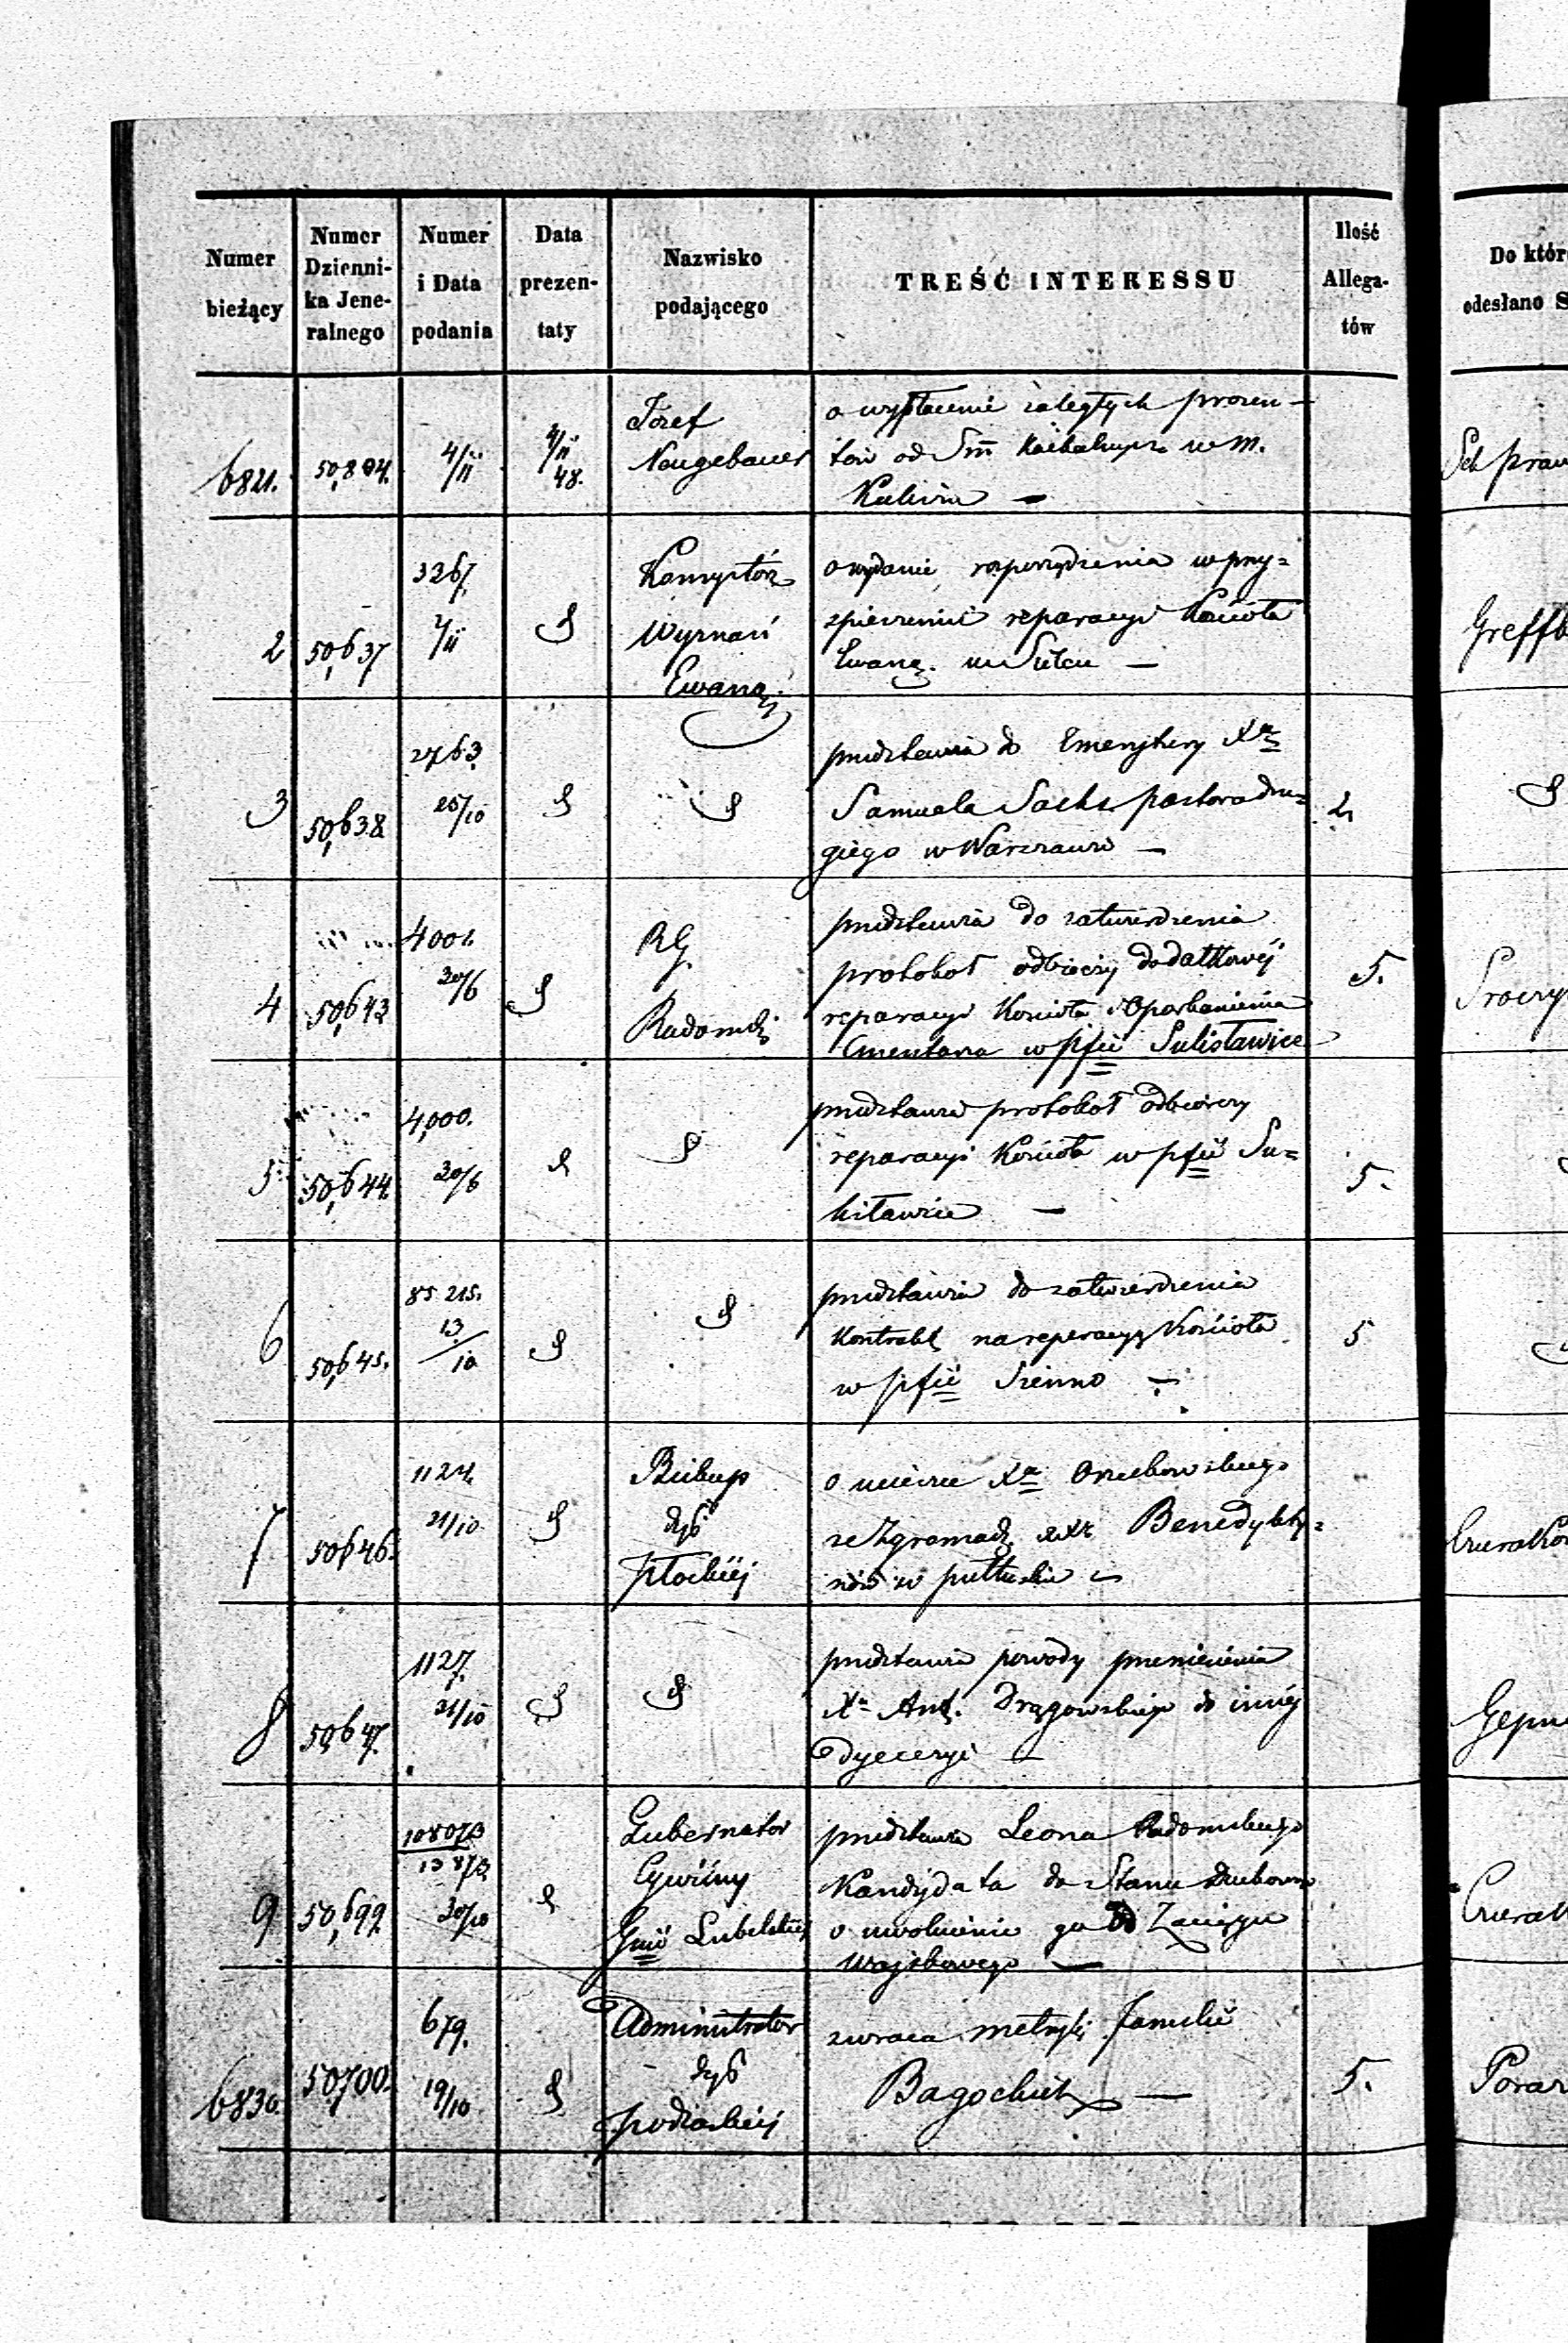 Numer bieżący | Numer Dziennika Jeneralnego | Numer i Data podania | Data prezentaty | Nazwisko podającego | TREŚĆ INTERESSU | Ilość Allegatów | Do któr odesłano S
6821. 50,804. 4/11 4/11 48. Józef Naugebauer
o wypłacenie zaległych procen-
tów od Sm̄ w m.
Sek praw
2 50,637 3267. 2/11 Konsystorz Wyznań Ewang.
o wydanie rozporządzenia w przy=
spieszenie reparacyi Kościoła
Ewang.
Greffb
3 50,638 2763. 25/10
przedstawia do Emerytury Xa
Samuela Sachs pastora dru=
giego w Warszawie
2.
4 50,643 4001. 30/6 RG. Radomski
przedstawia do zatwierdzenia
protokoł odbiorczy dodatkowej
reparacyi Kościoła i Oparkanienia
Cmentarza w pfii Sulisławice
5.
5 50,644. 4,000. 30/6
przedstawia protokoł odbiorczy
reparacyi Kościoła w pfii Su=
lisławice
5.
6 50,645. 85 215. 13/10
przedstawia do zatwierdzenia
Kontrakt na reperacyą Kościoła
w pfii Sienno
5
7 50646. 1124. 21/10 Biskup dyō płockiej
o Xa Orzechowskiego
ze Zgromadz. XX Benedykty=
nów w pułtusku
8 50647. 1127. 21/10
przedstawia powody przeniesienia
Xa Ant. Drągowskiego do innéj
dyecezyi
9 50,699. 108073 13873 30/10 Gubernator Cywilny Gnii Lubelskiej
przedstawia Leona Radomskiego
Kandydata do Stanu Duchown
o uwolnienie go od Zaciągu
Wojskowego
6830. 50700. 679. 19/10 Administrator dyō podlaskiej
zwraca metryki familii
Bagockich
5.